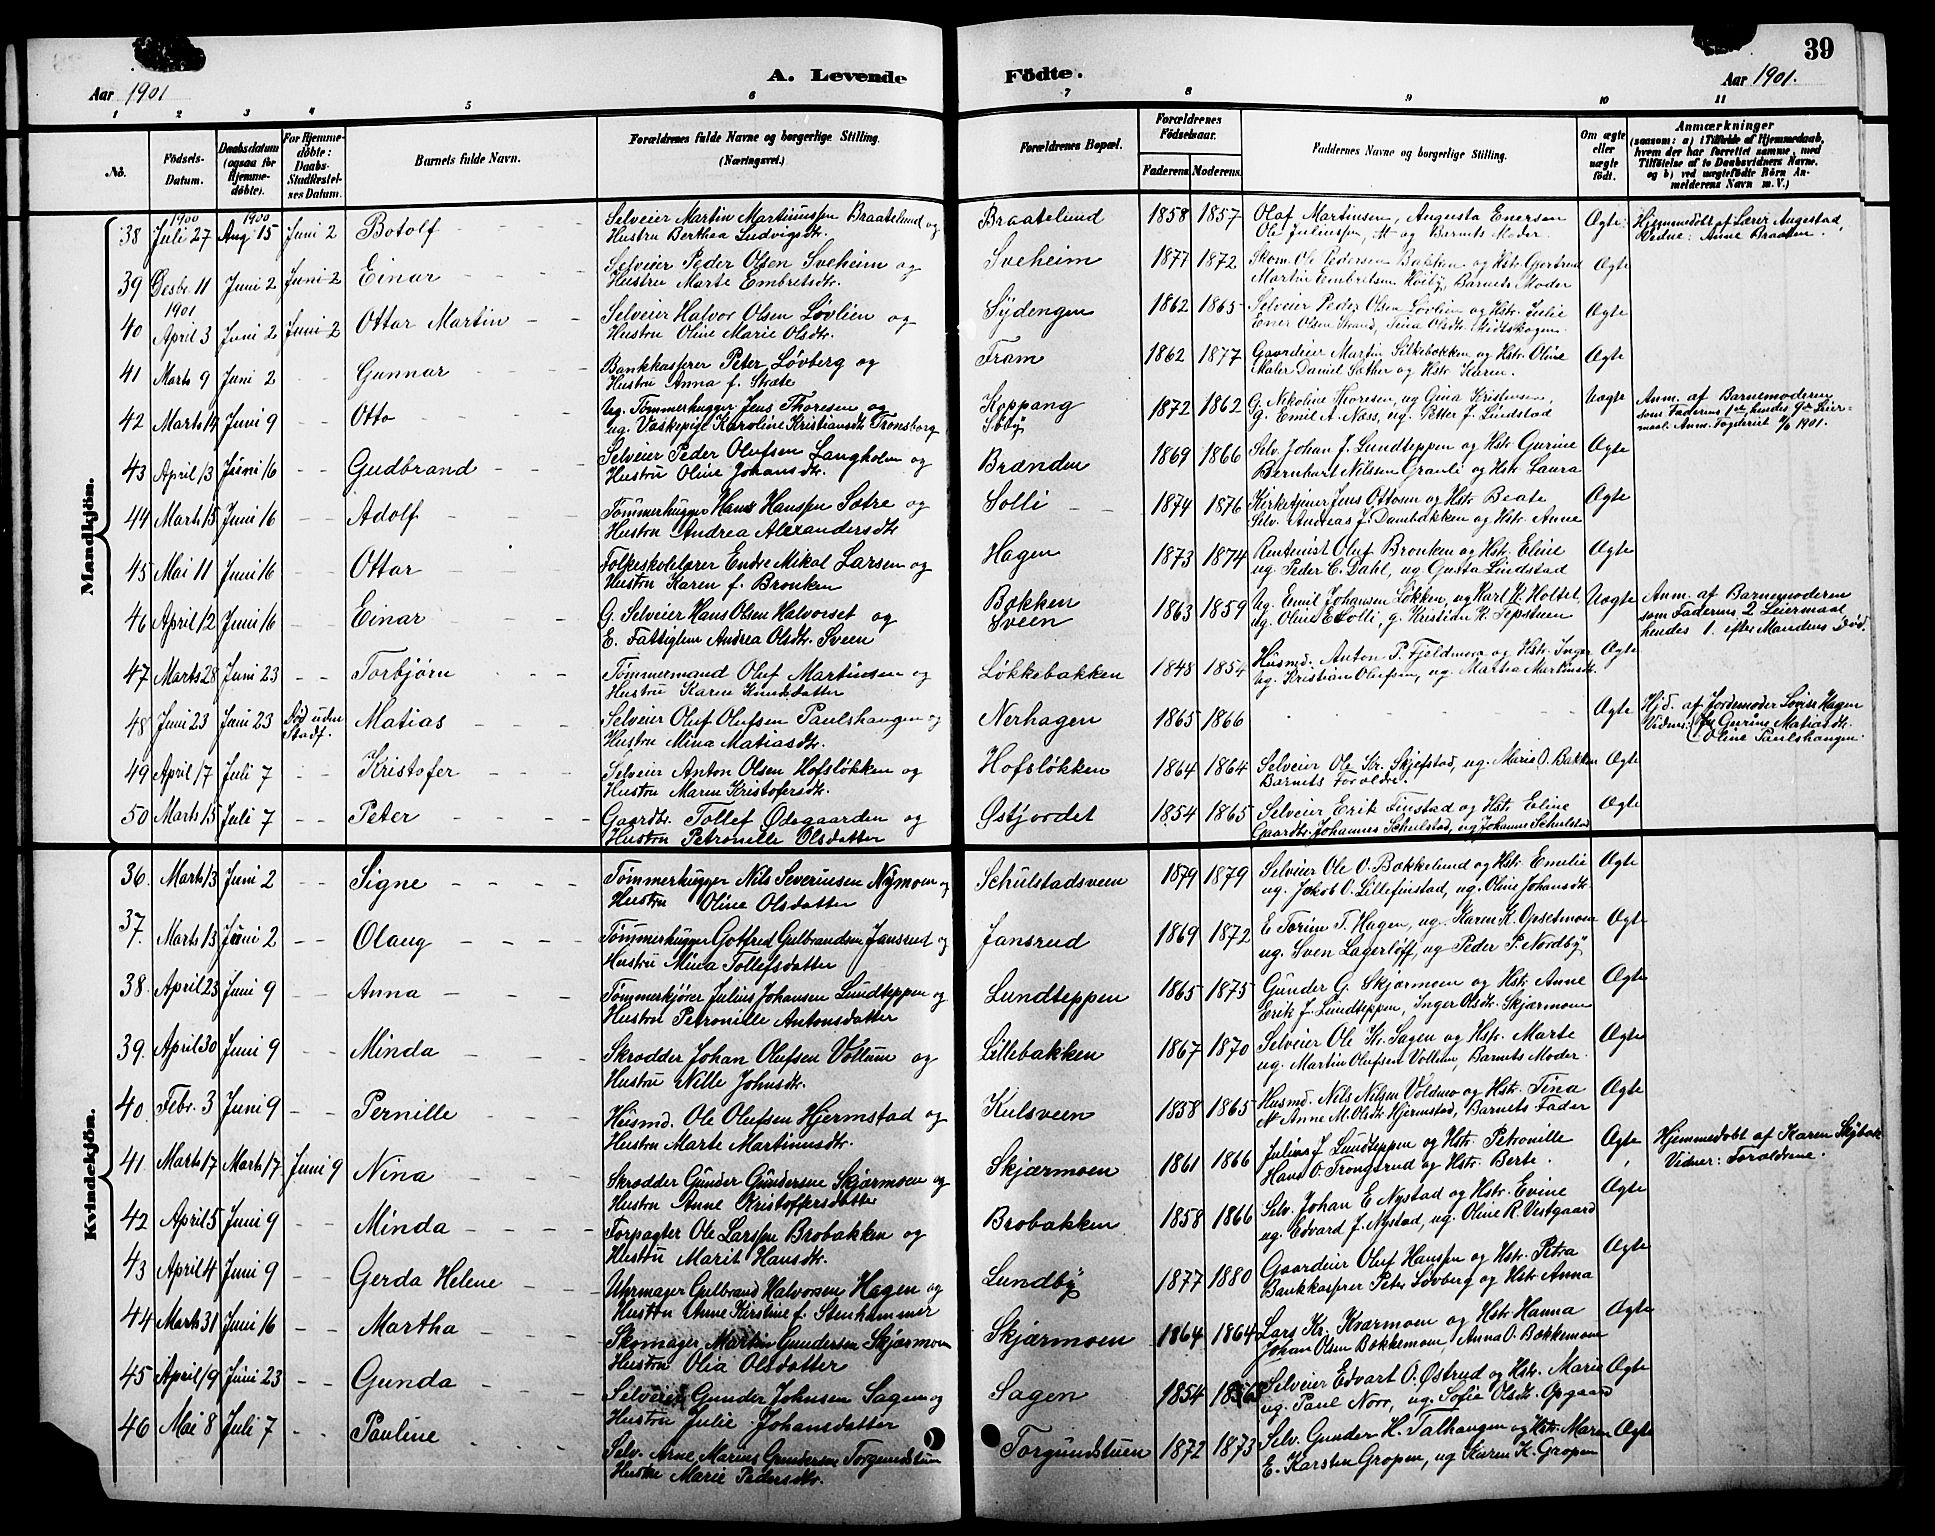 39
A. Levende Födte.
Aar 1901
Aar 1901.
1 2 3 4 5 6 7 8 9 10 11
No.
Födsels-Datum.
Daabsdatum (ogsaa for Hjemmedöbte).
For Hjemmedöbte: Daabs Stadfæstelses Datum.
Barnets fulde Navn.
Forældrenes fulde Navne og borgerlige Stilling. (Næringsvei.)
Forældrenes Bopæl.
Forældrenes Födselsaar.
Faderens. Moderens.
Faddernes Navne og borgerlige Stilling.
Om ægte eller uægte födt.
Anmærkninger
(saasom: a) i Tilfælde af Hjemmedaab, hvem der har forrettet samme, med Tilföielse af to Daabsvidners Navne, og b) ved uægtefödte Börn Anmelderens Navn m. V.)
Mandkjön.
1900 1900
38 Juli 27 Aug 15 Juni 2 Botolf Selveier Martin Martinussen Braatelund og Braatelund 1858 1857 Olaf Martinsen, Augusta Enersen Ægte Hjemmedöbt af Lærer Augestad,
Hustru Berthea Ludvigsdtr. Ole Juliussen, og Barnets Moder. Vidne: Anne Braaten.
39 Desbr 11 Juni 2 Juni 2 Einar Selveier Peder Olsen Sveheim og Sveheim 1877 1872 Skom. Ole Pedersen Bakken og Hstr. Gjertrud Ægte
Hustru Marte Embretsdtr. Martin Embretsen Hveby, Barnets Moder
1901
40 April 3 Juni 2 Juni 2 Ottar Martin Selveier Halvor Olsen Løvlien og Sydengen 1862 1865 Selveier Peder Olsen Løvlien og Hstr. Julie Ægte
Hustru Oline Marie Olsdtr. Ener Olsen Strand, Tina Olsdtr. Midtskogen
41 Marts 9 Juni 2 Gunnar Bankkasserer Peter Løvberg og Fram 1862 1877 Gaardeier Martin Silkebækken og Hstr. Oline Ægte
Hustru Anna f. Stræte Maler Daniel Sæther og Hstr. Karen.
42 Marts 14 Juni 9 Otto Ug. Tømmerhugger Jens Thoresen og Koppang 1872 1862 G. Nikoline Thoresen, ug Gina Kristensen, Uægte Anm. af Barnemoderen
ug. Vaskepige Karoline Kristiansdtr Tronsborg G. Emil A. Næss, ug. Petter J. Lindstad som Faderens 1ste hendes 9de Leier-
maal. Anm. Fogderiet 1901.
43 April 13 Juni 16 Gudbrand Selveier Peder Olufsen Langholm og Brænden 1869 1866 Selv. Johan J. Lundteppen og Hstr. Gurine Ægte
Hustru Oline Johansdtr. Bernhart Nilsen Granli og Hstr. Laura
44 Marts 15 Juni 16 Adolf Tømmerhugger Hans Hanssen Sætre og Solli 1874 1876 Kirketjener Jens Ottosen og Hstr. Beate Ægte
Hustru Andrea Alexandersdtr Selv. Andreas J. Dambækken og Hstr. Anne
45 Mai 11 Juni 16 Ottar Folkeskolelærer Endre Mikal Larsen og Hagen 1873 1874 Rentenist Oluf Bronken og Hstr. Eline Ægte
Hustru Karen f. Bronken ug. Peder C. Dahl, ug. Gusta Lindstad
46 April 12 Juni 16 Einar G. Selveier Hans Olsen Halvorset og Bækken 1863 1859 Ug. Emil Johansen Løkken, ug Karl K. Holtet Uægte Anm. af Barnemoderen
E. Fattiglem Andrea Olsdtr. Sveen Sveen ug. Oline E. Solli, g. Kristian K. Tepstuen som Faderens 2 Leiermaal
hendes 1. efter Mandens Död.
47 Marts 28 Juni 23 Torbjørn Tømmermand Oluf Martinsen og Løkkebakken 1848 1854 Husmd. Anton P. Fjeldmora og Hstr. Inger Ægte
Hustru Karen Knudsdatter ug. Kristian Olufsen, ug Martha Martinsdtr.
48 Juni 23 Juni 23 Død uden Stadf. Matias Selveier Oluf Olufsen Paulshaugen og Nerhagen 1865 1866 Ægte Hjd. af Jordemoder Lovise Hagen
Hustru Mina Matiasdtr. Vidner: Gurine Matiasdtr.
Oline Paulshaugen.
49 April 17 Juli 7 Kristofer Selveier Anton Olsen Hofsløkken og Hofsløkken 1864 1864 Selveier Ole Kr. Skjefstad, ug. Marie O. Bakken Ægte
Hustru Maren Kristofersdtr. Barnets Forældre.
50 Marts 15 Juli 7 Peter Gaardbr. Tollef Ødegaarden og Østjordet 1854 1865 Selveier Erik Finstad og Hstr. Eline Ægte
Hustru Petronille Olsdatter Gaardbr. Johannes Schulstad, ug Johanne Schulstad
Kvindekjön.
36. Marts 13 Juni 2 Signe Tømmerhugger Nils Severinsen Nymoen og Schulstadsveen 1879 1879 Selveier Ole O. Bækkelund og Hstr. Emelie Ægte
Hustru Oline Olsdatter ug. Jakob O. Lillefinstad, ug. Oline Johansdtr
37. Marts 13 Juni 2 Olaug Tømmerhugger Gotfred Gulbrandsen Jansrud og Jansrud 1869 1872 E. Torine T. Hagen, ug. Karen K. Orsetmoen Ægte
Hustru Mina Tollefsdatter ug. Sven Lagerløff, ug Peder P. Nordby
38. April 23 Juni 9 Anna Tømmerkjører Julius Johansen Lundteppen og Lundteppen 1865 1875 Gunder G. Skjærmoen og Hstr. Anne Ægte
Hustru Petronille Antonsdatter Erik J. Lundteppen, Inger Olsdtr. Skjærmoen
39. April 30 Juni 9 Minda Skrædder Johan Olufsen Vollum og Lillebakken 1867 1870 Selveier Ole Kr. Sagen og Hstr. Marte Ægte
Hustru Nille Johnsdtr. ug. Martin Olufsen Vollum, Barnets Moder.
40 Febr. 3 Juni 9 Pernille Husmd. Ole Olufsen Hjermstad og Kulsveen 1838 1865 Husmd. Nils Nilsen Voldmo og Hstr. Tina Ægte
Hustru Marte Martinusdtr. Anne M. Olsdtr Hjermstad, Barnets Fader
41. Marts 17 Marts 17 Juni 9 Nina Skrædder Gunder Gundersene Skjærmoen og Skjærmoen 1861 1866 Julius J. Lundteppen og Hstr. Petronille Ægte Hjemmedöbt af Karen Skybak
Hustru Anne Kristoffersdatter Hans O. Trongsrud og Hstr. Berte. Vidner: Forældrene.
42 April 5 Juni 9 Minda Forpagter Ole Larssen Brobakken og Brobakken 1858 1866 Selv. Johan E. Nystad og Hstr. Evine Ægte
Hustru Marit Hansdtr. ug. Edvard J. Nystad, ug. Oline R. Vestgaard
43 April 4 Juni 9 Gerda Helene Uhrmager Gulbrand Halvorsen Hagen og Lundby 1877 1880 Gaardeier Oluf Hanssen og Hstr. Petra Ægte
Hustru Anne Kirstine f. Stenhammer Bankkasserer Peter Løvberg og Hstr. Anna
44 Marts 31 Juni 16 Martha Skomager Martin Gundersen Skjærmoen Skjærmoen 1864 1864 Lars Kr. Kværmoen og Hstr. Hanna Ægte
Hustru Olia Olsdatter Johan Olsen Bækkemoen, Anna O. Bækkemoen
45 April 9 Juni 23 Gunda Selveier Gunder Johnsen Sagen og Sagen 1854 Selveier Edvart O. Østrud og Hstr. Marie Ægte
Hustru Julie Johansdatter ug. Paul Norr, ug. Sofie Olsdtr. Opgaard
46 Mai 8 Juli 7 Pauline Selv. Arne Marius Gundersen Torgundstuen Torgundstuen 1872 1873 Selv. Gunder H. Talhaugen og Hstr. Maren Ægte
Hustru Marie Pedersdtr. E. Karsten Gropen, ug Karen K. Gropen